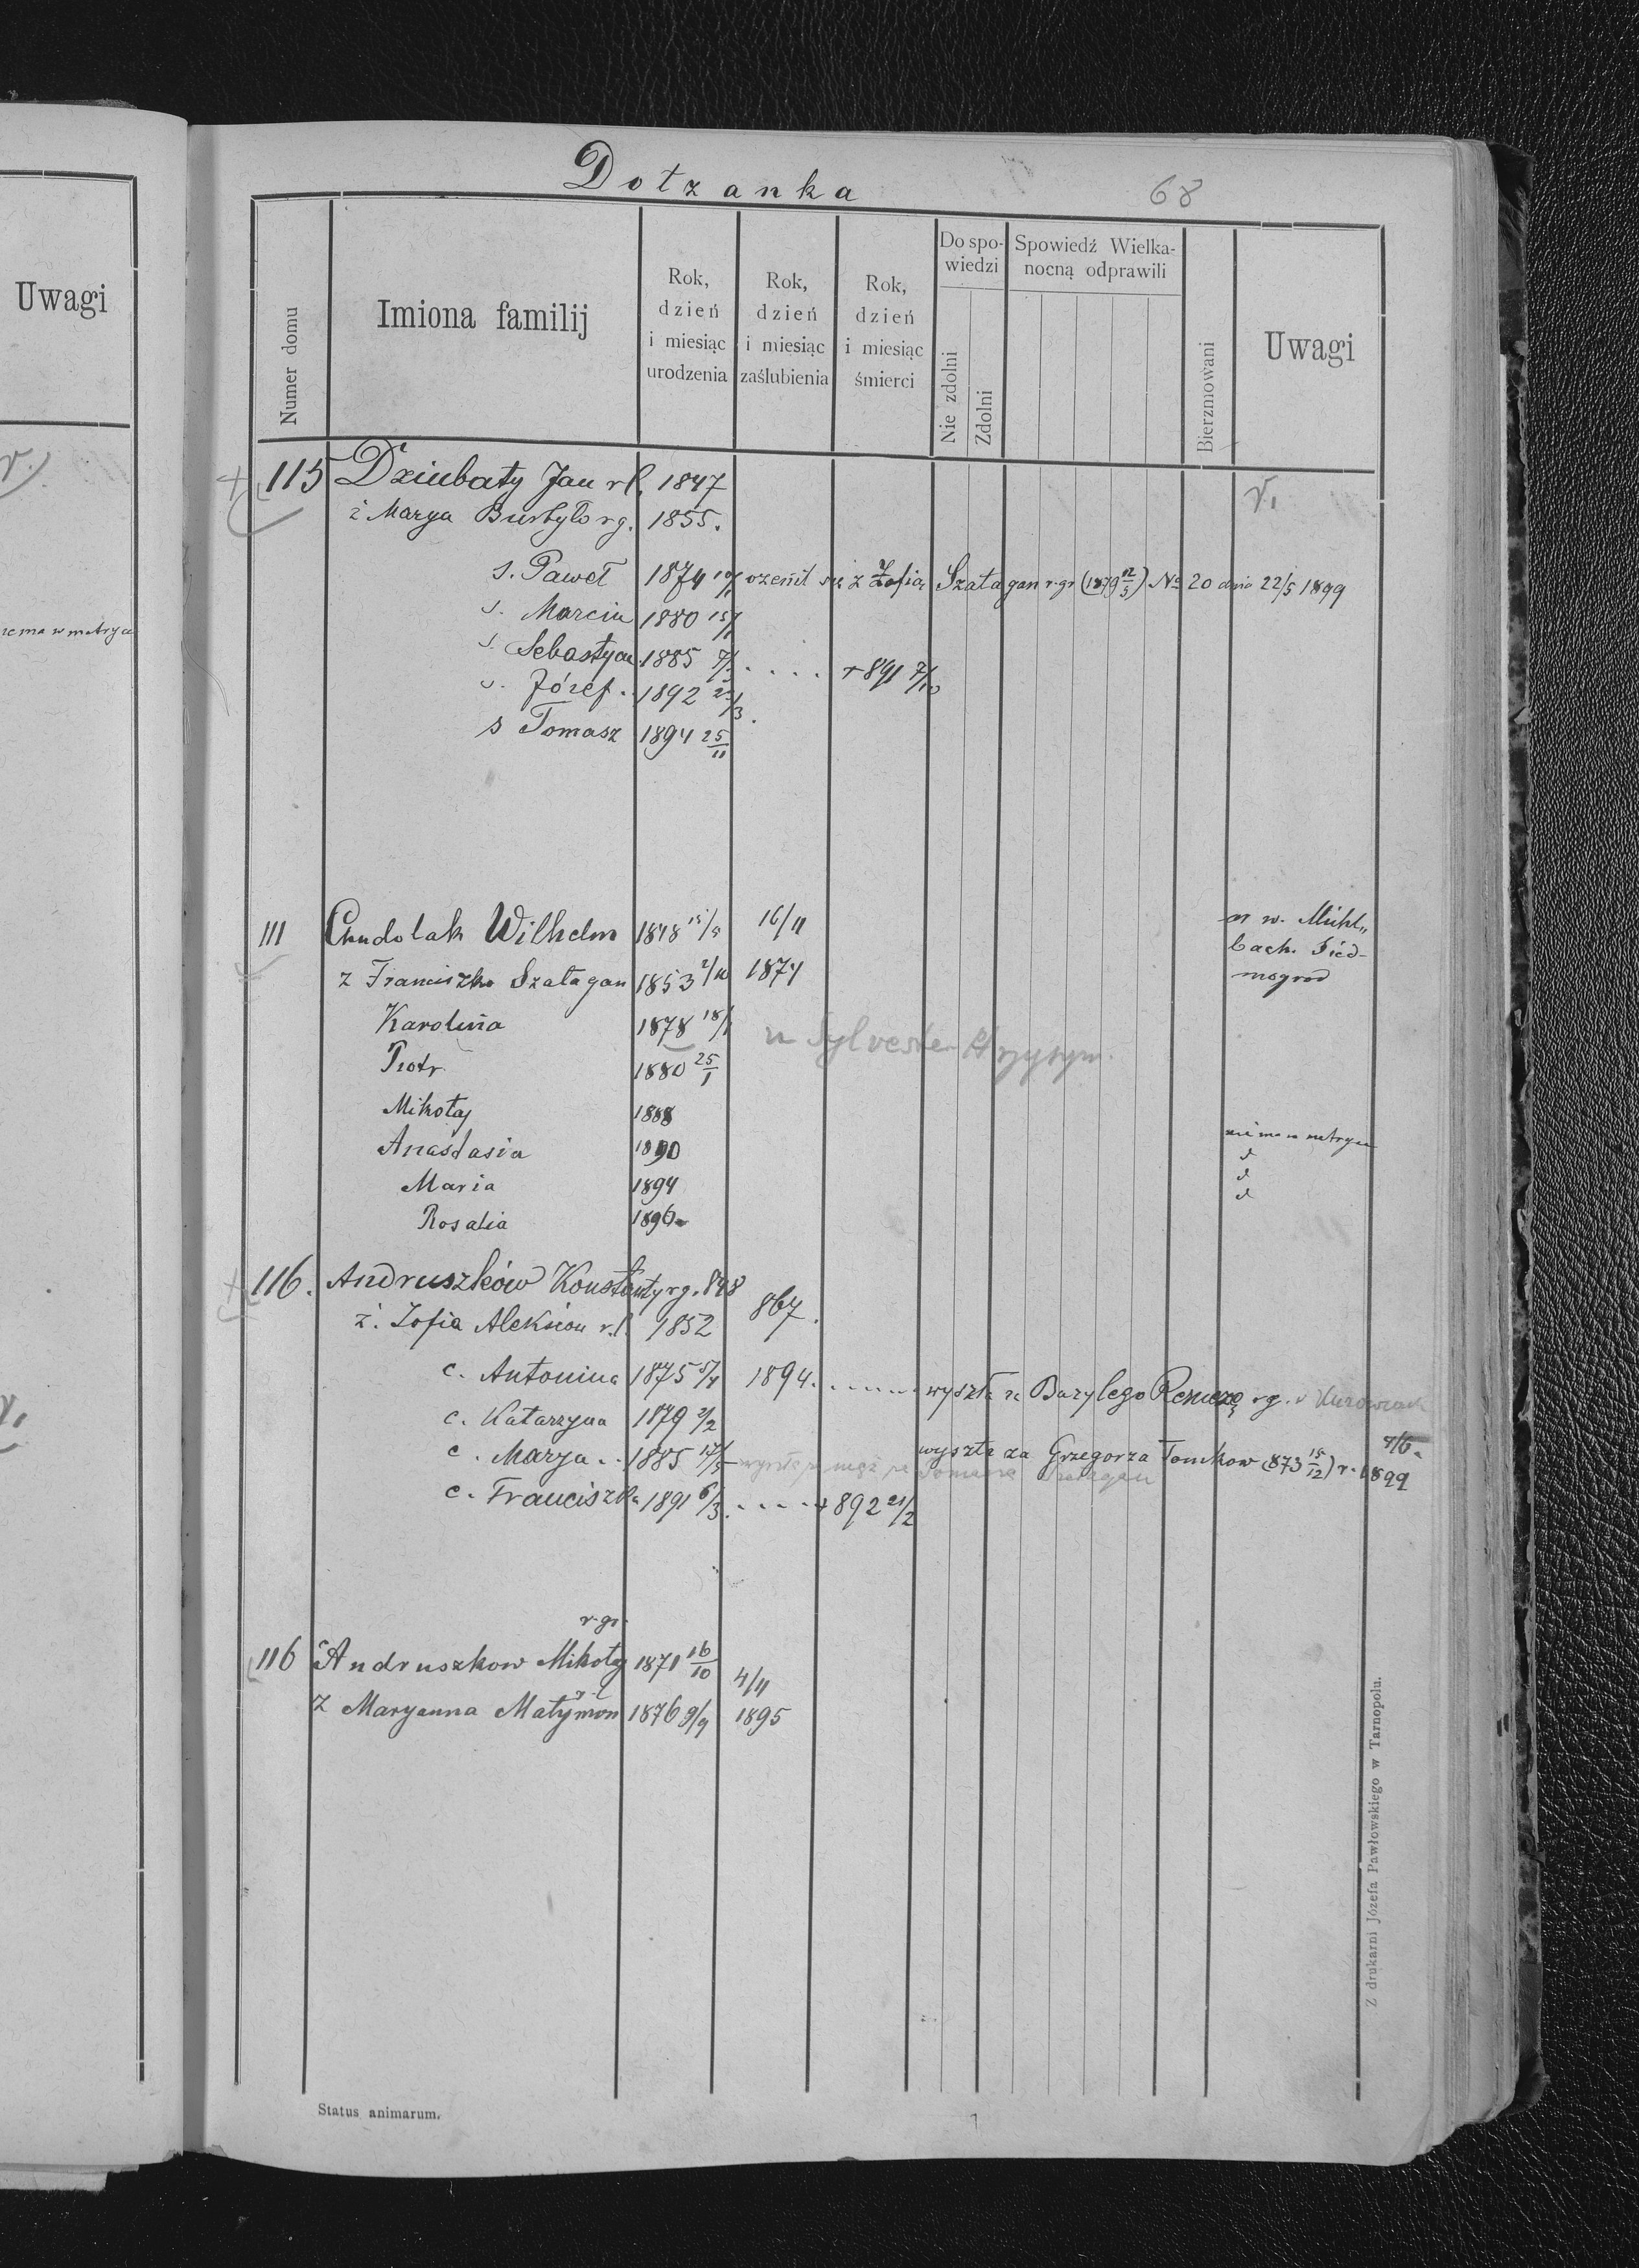 Uwagi
V.
niema w metryce
V.
Dołżanka
68
Numer domu
Imiona familij
Rok,
dzień
i miesiąc
urodzenia
Rok,
dzień
i miesiąc
zaślubienia
Rok,
dzień
i miesiąc
śmierci
Do spo-
wiedzi
Nie zdolni
Zdolni
Spowiedź Wielka-
nocną odprawili
Bierzmowani
Uwagi
115 Dziubaty Jan rł. 1847 V.
ż Marya Burbyło rg. 1855.
s. Paweł 1874 ożenił się z Zofią Szatagan r.gr (1879 12/5) No 20 dnia 22/5 1899
s. Marcin 1880 15/1
s. Sebastyan 1885 . . . . + 891 7/10
s. Józef. 1892
s Tomasz 1894 25/11
111 Chudolak Wilhelm 1848 16/11 ur w. Mühl„
bach. Siéd-
mogrod
z Franciszka Szatagan 1853 2/10 1874
Karolina 1878 18/1 Sylvester
Piotr 1880 25/1
Mikołaj 1888
Anastasia 1890 niéma w metryce
Maria 1894 d
Rosalia 1896 d
d
116. Andruszków Konstanty rg. 848
867.
ż. Zofia Aleksiow r.ł. 1852
c. Antonina 1875 5/4 1894. . . . . . . wyszła za Bazylego rg. v Kurowcach
c. Katarzyna 1879 2/2 wyszła za Grzegorza Tomkow (873 15/12) r. 1899
c. Marya . . 1885 17/5
c. Franciszka 1891 6/3 . . . . + 892 21/2
r.gr.
116 Andruszkow Mikołaj 1871 16/10 4/11
r.ł
z Maryanna Małymon 1876 9/9 1895
Z drukarni Józefa Pawłowskiego w Tarnopolu.
Status animarum.